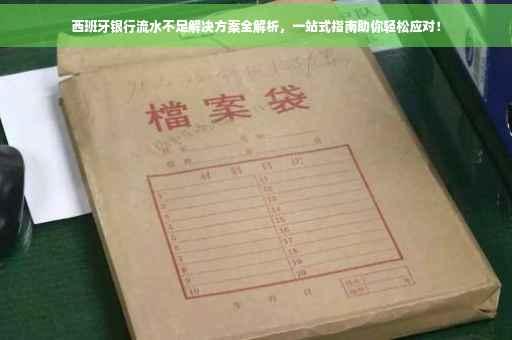 西班牙银行流水不足解决方案全解析，一站式指南助你轻松应对！
檔案袋
材料目次
1 11
2 12
3 13
4 14
5 15
6 16
7 17
8 18
9 19
10 20
年 月 日